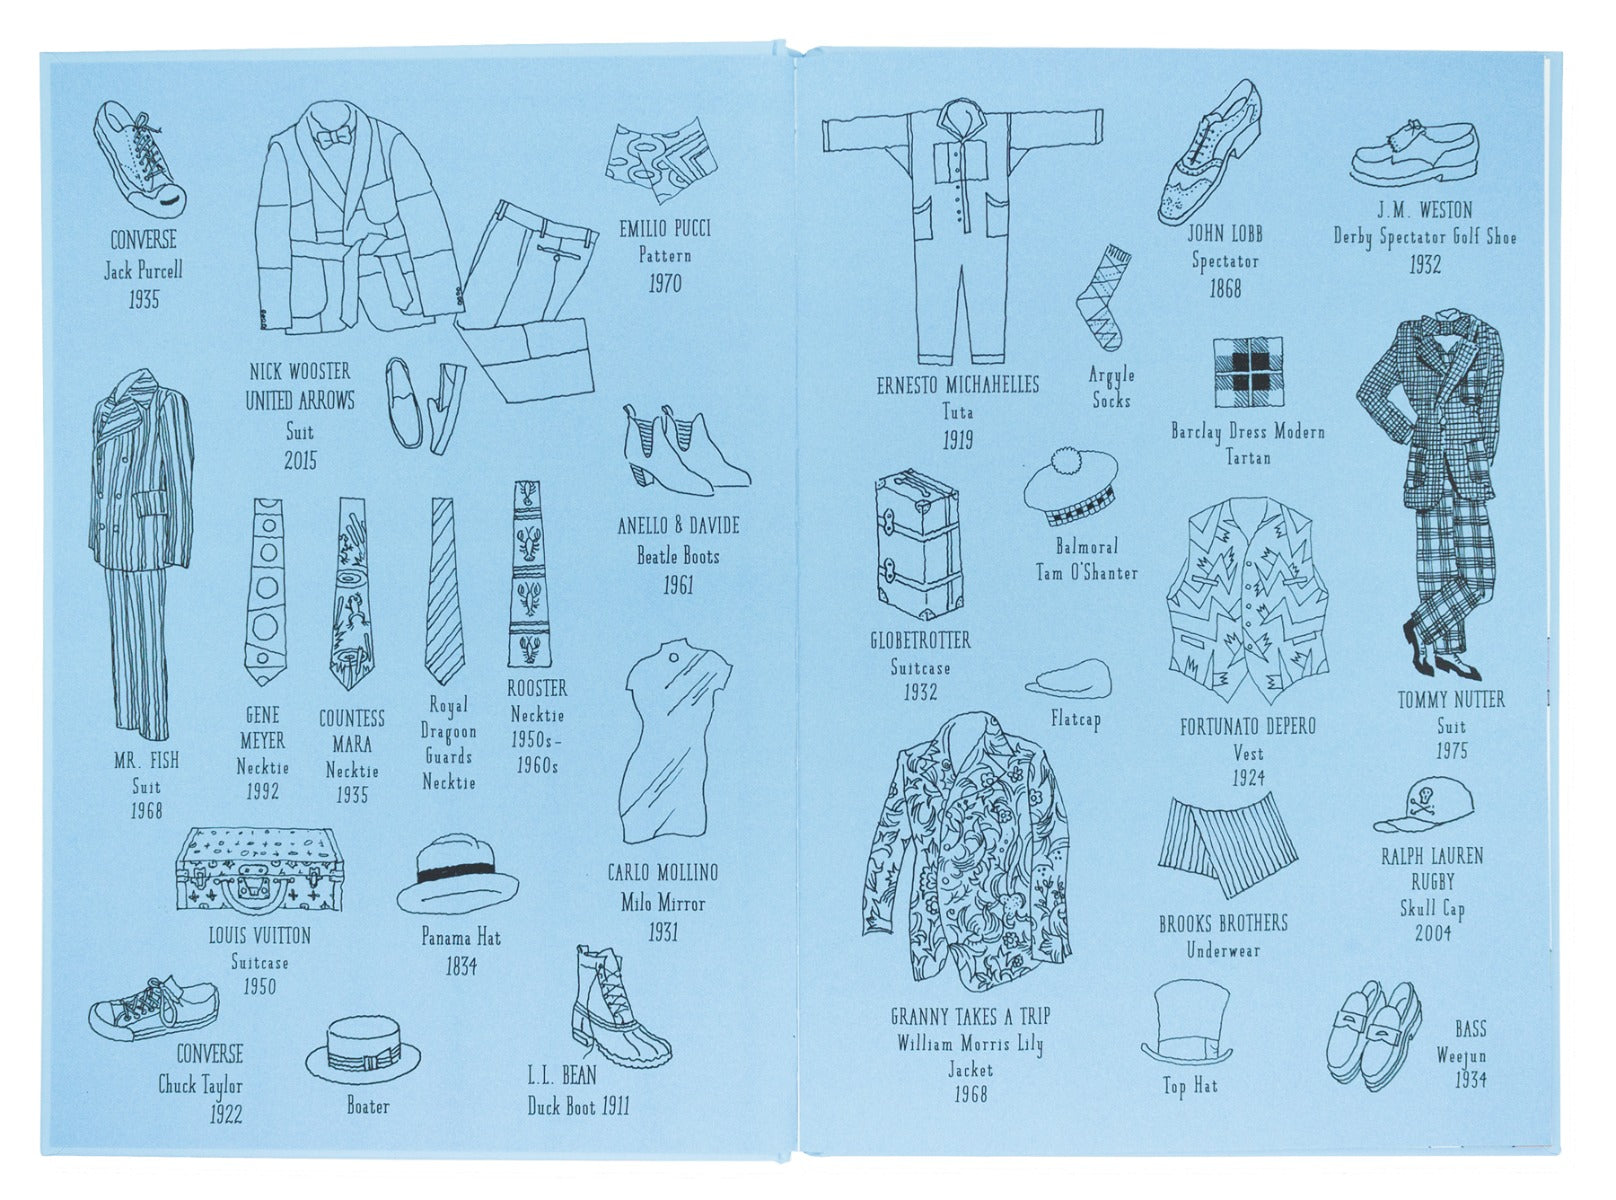 CONVERSE
Jack Purcell
1935
NICK WOOSTER
UNITED ARROWS
Suit
2015
EMILIO PUCCI
Pattern
1970
MR. FISH
Suit
1968
GENE
MEYER
Necktie
1992
COUNTESS
MARA
Necktie
1935
Royal
Dragoon
Guards
Necktie
ROOSTER
Necktie
1950s–
1960s
ANELLO & DAVIDE
Beatle Boots
1961
CARLO MOLLINO
Milo Mirror
1931
LOUIS VUITTON
Suitcase
1950
Panama Hat
1834
CONVERSE
Chuck Taylor
1922
Boater
L.L. BEAN
Duck Boot 1911
ERNESTO MICHAHELLES
Tuta
1919
Argyle
Socks
JOHN LOBB
Spectator
1868
J.M. WESTON
Derby Spectator Golf Shoe
1932
Barclay Dress Modern
Tartan
Balmoral
Tam O'Shanter
GLOBETROTTER
Suitcase
1932
Flatcap
FORTUNATO DEPERO
Vest
1924
TOMMY NUTTER
Suit
1975
GRANNY TAKES A TRIP
William Morris Lily
Jacket
1968
BROOKS BROTHERS
Underwear
RALPH LAUREN
RUGBY
Skull Cap
2004
Top Hat
BASS
Weejun
1934